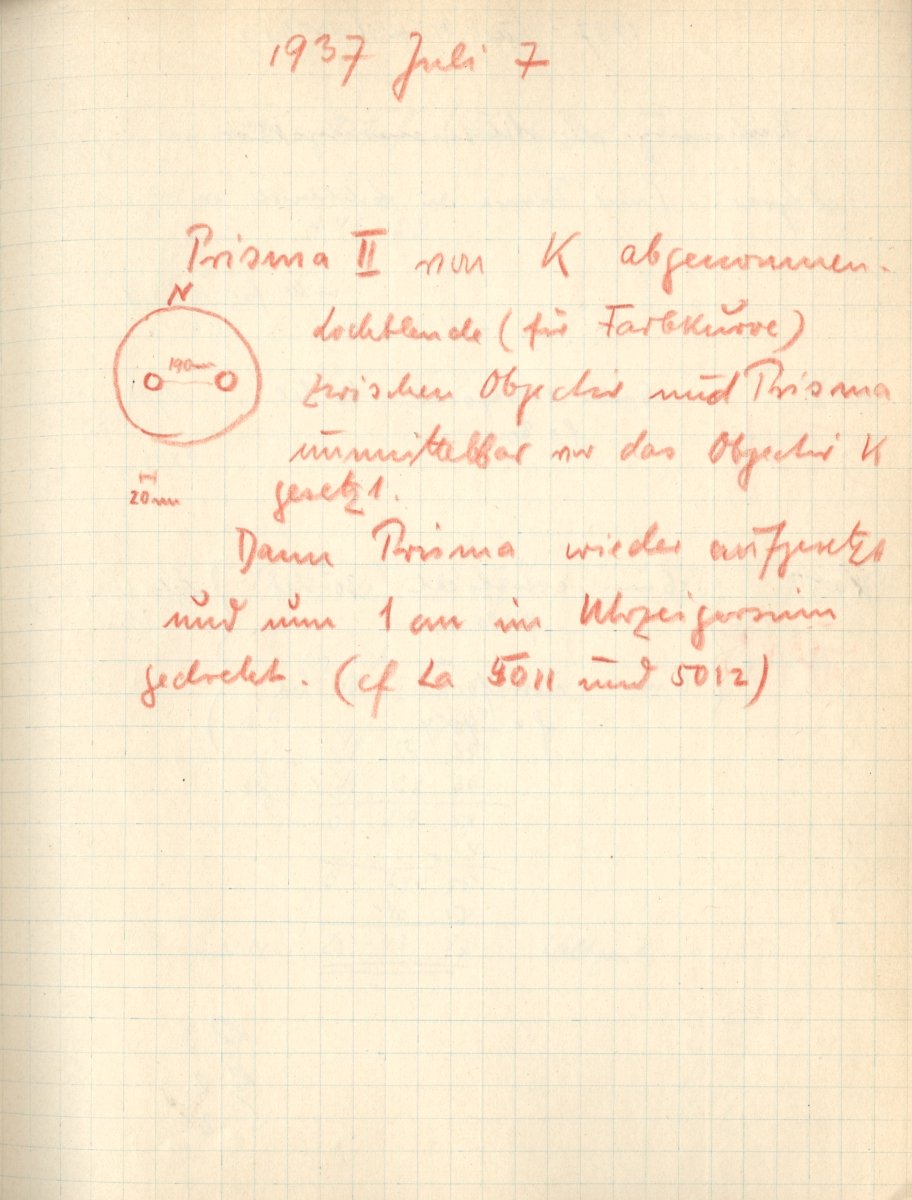 1937 Juli 7
Prisma II von K abgenommen.
N
Lochblende (für Farbkurve)
190mm
zwischen Objectiv und Prisma
unmittelbar vor das Objectiv K
20mm
gesetzt.
Dann Prisma wieder aufgesetzt
und um 1 cm im Uhrzeigersinn
gedreht. (cf La 5011 und 5012)